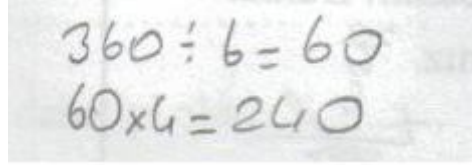 360÷6=60
60×4=240